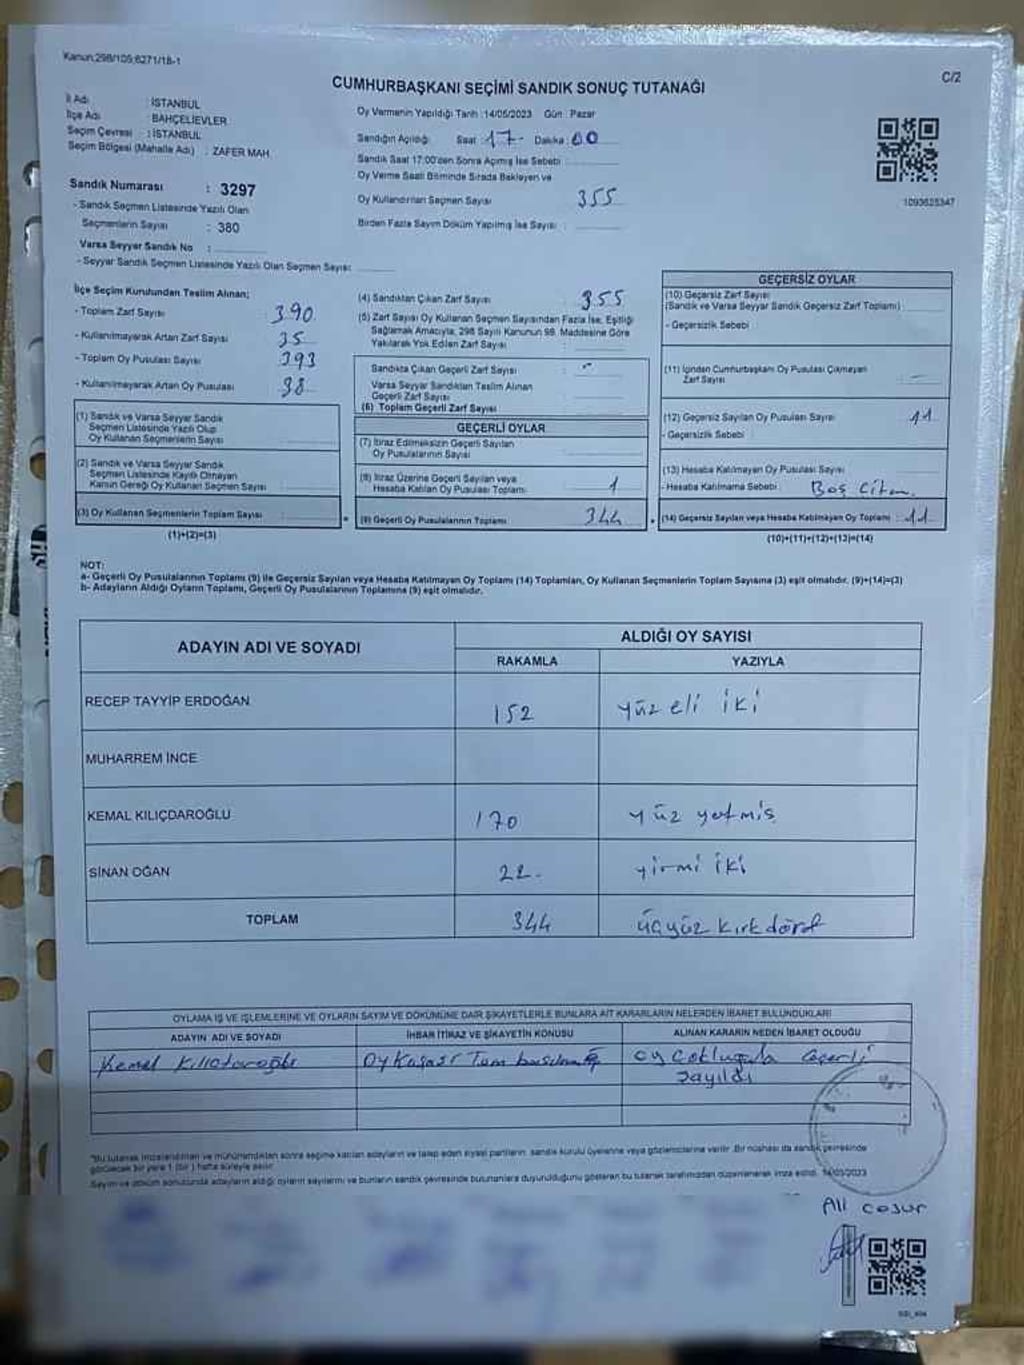 Kanun:298/105;6271/18-1
C/2
CUMHURBAŞKANI SEÇİMİ SANDIK SONUÇ TUTANAĞI
İl Adı : İSTANBUL
İlçe Adı : BAHÇELİEVLER
Seçim Çevresi : İSTANBUL
Seçim Bölgesi (Mahalle Adı) : ZAFER MAH.
Oy Vermenin Yapıldığı Tarih :14/05/2023 Gün : Pazar
Sandığın Açıldığı Saat 17- Dakika: 00
Sandık Saat 17:00'den Sonra Açılmış İse Sebebi :
Oy Verme Saati Bitiminde Sırada Bekleyen ve
Oy Kullandırılan Seçmen Sayısı 355
Birden Fazla Sayım Döküm Yapılmış İse Sayısı :
1093625347
Sandık Numarası : 3297
- Sandık Seçmen Listesinde Yazılı Olan
Seçmenlerin Sayısı : 380
Varsa Seyyar Sandık No :
- Seyyar Sandık Seçmen Listesinde Yazılı Olan Seçmen Sayısı:
İlçe Seçim Kurulundan Teslim Alınan;
- Toplam Zarf Sayısı 390
- Kullanılmayarak Artan Zarf Sayısı 35
- Toplam Oy Pusulası Sayısı 393
- Kullanılmayarak Artan Oy Pusulası 38
(1) Sandık ve Varsa Seyyar Sandık
Seçmen Listesinde Yazılı Olup
Oy Kullanan Seçmenlerin Sayısı
(2) Sandık ve Varsa Seyyar Sandık
Seçmen Listesinde Kayıtlı Olmayan
Kanun Gereği Oy Kullanan Seçmen Sayısı
(3) Oy Kullanan Seçmenlerin Toplam Sayısı :
(1)+(2)=(3)
(4) Sandıktan Çıkan Zarf Sayısı 355
(5) Zarf Sayısı Oy Kullanan Seçmen Sayısından Fazla İse, Eşitliği
Sağlamak Amacıyla, 298 Sayılı Kanunun 98. Maddesine Göre
Yakılarak Yok Edilen Zarf Sayısı :
Sandıkta Çıkan Geçerli Zarf Sayısı : -
Varsa Seyyar Sandıktan Teslim Alınan
Geçerli Zarf Sayısı
(6) Toplam Geçerli Zarf Sayısı
GEÇERLİ OYLAR
(7) İtiraz Edilmeksizin Geçerli Sayılan
Oy Pusulalarının Sayısı
(8) İtiraz Üzerine Geçerli Sayılan veya
Hesaba Katılan Oy Pusulası Toplamı 1
(9) Geçerli Oy Pusulalarının Toplamı 344
GEÇERSİZ OYLAR
(10) Geçersiz Zarf Sayısı
(Sandık ve Varsa Seyyar Sandık Geçersiz Zarf Toplamı)
- Geçersizlik Sebebi :
(11) İçinden Cumhurbaşkanı Oy Pusulası Çıkmayan
Zarf Sayısı -
(12) Geçersiz Sayılan Oy Pusulası Sayısı 11
- Geçersizlik Sebebi :
(13) Hesaba Katılmayan Oy Pusulası Sayısı
- Hesaba Katılmama Sebebi : Boş
(14) Geçersiz Sayılan veya Hesaba Katılmayan Oy Toplamı : 11
(10)+(11)+(12)+(13)=(14)
NOT:
a- Geçerli Oy Pusulalarının Toplamı (9) ile Geçersiz Sayılan veya Hesaba Katılmayan Oy Toplamı (14) Toplamları, Oy Kullanan Seçmenlerin Toplam Sayısına (3) eşit olmalıdır. (9)+(14)=(3)
b- Adayların Aldığı Oyların Toplamı, Geçerli Oy Pusulalarının Toplamına (9) eşit olmalıdır.
ADAYIN ADI VE SOYADI
ALDIĞI OY SAYISI
RAKAMLA YAZIYLA
RECEP TAYYİP ERDOĞAN 152 yüz eli iki
MUHARREM İNCE
KEMAL KILIÇDAROĞLU 170 yüz yetmiş
SİNAN OĞAN 22- yirmi iki
TOPLAM 344 üçyüz kırkdört
OYLAMA İŞ VE İŞLEMLERİNE VE OYLARIN SAYIM VE DÖKÜMÜNE DAİR ŞİKAYETLERLE BUNLARA AİT KARARLARIN NELERDEN İBARET BULUNDUKLARI
ADAYIN ADI VE SOYADI İHBAR İTİRAZ VE ŞİKAYETİN KONUSU ALINAN KARARIN NEDEN İBARET OLDUĞU
Kemal Kılıçdaroğlu Oy Kaşası Tam Oy çokluğuyla Geçerli
sayıldı
"Bu tutanak imzalandıktan ve mühürlendikten sonra seçime katılan adayların ve talep eden siyasi partilerin sandık kurulu üyelerine veya gözlemcilerine verilir. Bir nüshası da sandık çevresinde
görülecek bir yere 1 (bir) hafta süreyle asılır.
Sayım ve döküm sonucunda adayların aldığı oyların sayılarını ve bunların sandık çevresinde bulunanlara duyurulduğunu gösteren bu tutanak tarafımızdan düzenlenerek imza edildi. 14/05/2023
Ali cesur